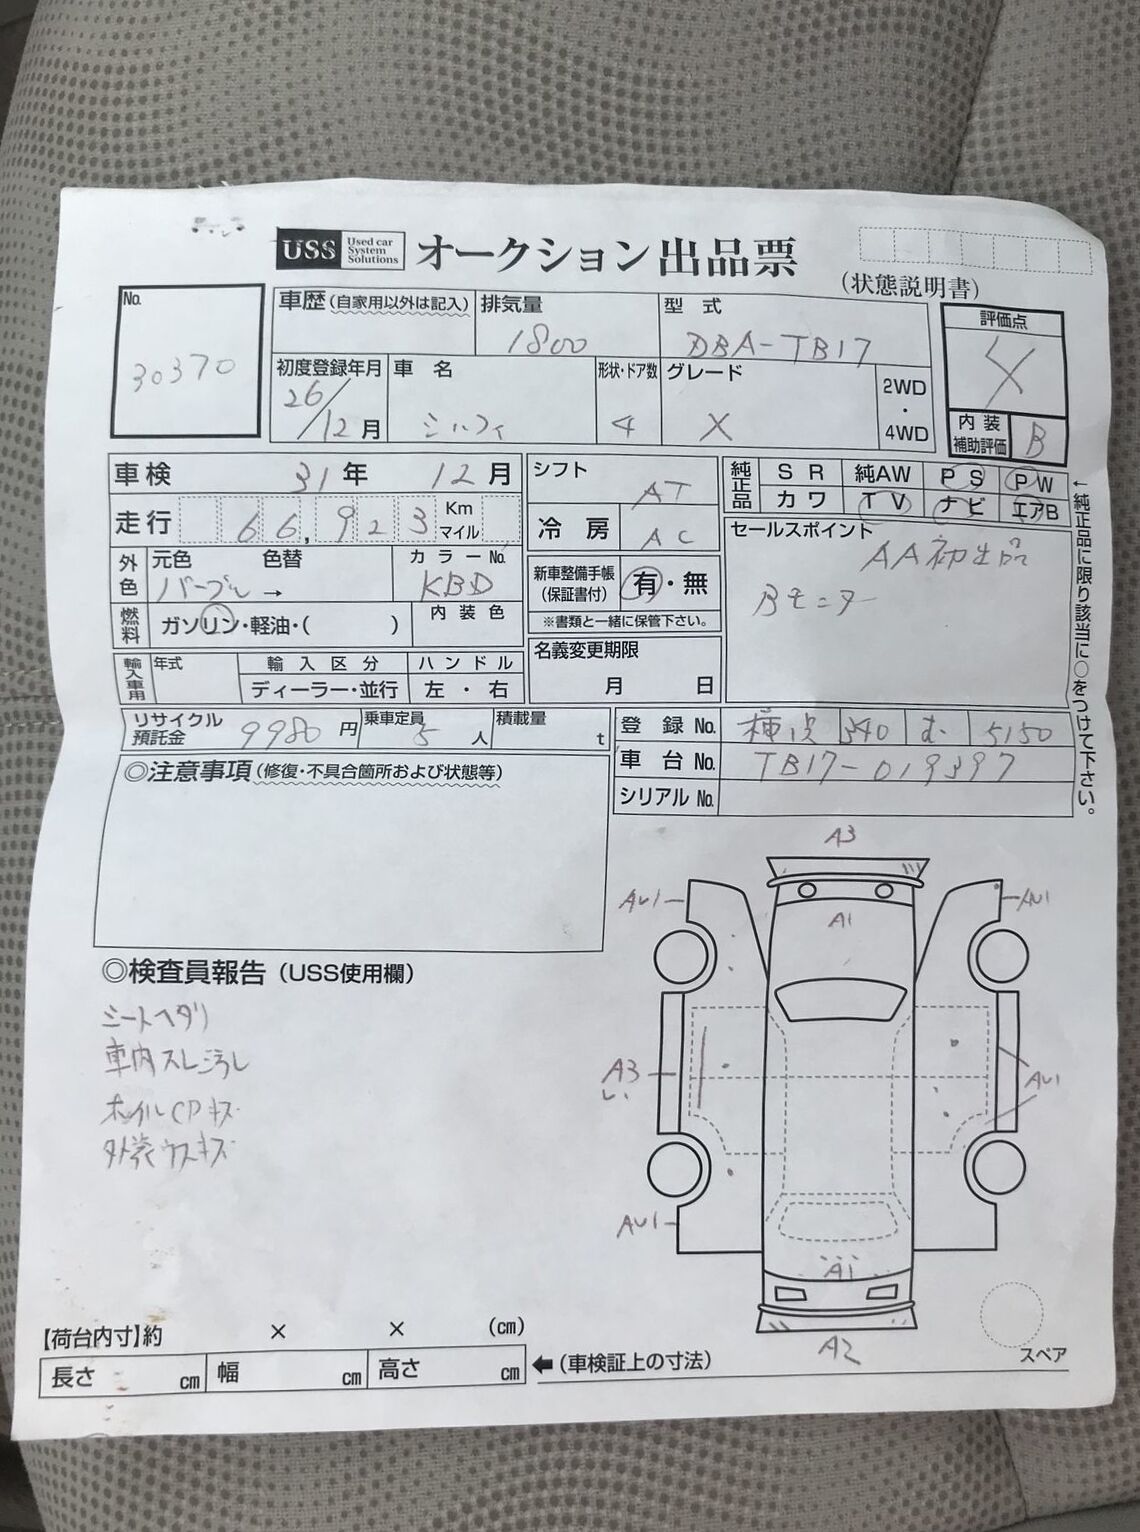 USS Used car System Solutions オークション出品票
(状態説明書)
No.
30370
車歴(自家用以外は記入)
排気量
1800
型式
DBA-TB17
評価点
4
初度登録年月
26/12月
車名
シルフィ
形状・ドア数
4
グレード
X
2WD
・
4WD
内装
補助評価
B
車検 31年 12月
走行 66,923 Km マイル
外色
元色 色替
パープル→
カラーNo.
KBD
燃料
ガソリン・軽油・( )
内装色
輸入車用
年式
輸入区分
ディーラー・並行
ハンドル
左・右
シフト
AT
冷房
AC
新車整備手帳
(保証書付)
有・無
※書類と一緒に保管下さい。
名義変更期限
月 日
純正品
SR 純AW PS PW
カワ TV ナビ エアB
←純正品に限り該当に○をつけて下さい。
セールスポイント
AA初出品
Bモニター
リサイクル
預託金
9980円
乗車定員
5人
積載量
t
登録No. 340 む 5150
車台No. TB17-019397
シリアルNo.
◎注意事項(修復・不具合箇所および状態等)
◎検査員報告(USS使用欄)
シートヘタリ
車内スレ汚レ
ホイルCPキズ
外装ウスキズ
A3
AU1
AU1
A1
A3
AU1
AU1
A1
A2
スペア
【荷台内寸】約 × × (cm)
長さ cm 幅 cm 高さ cm ←(車検証上の寸法)